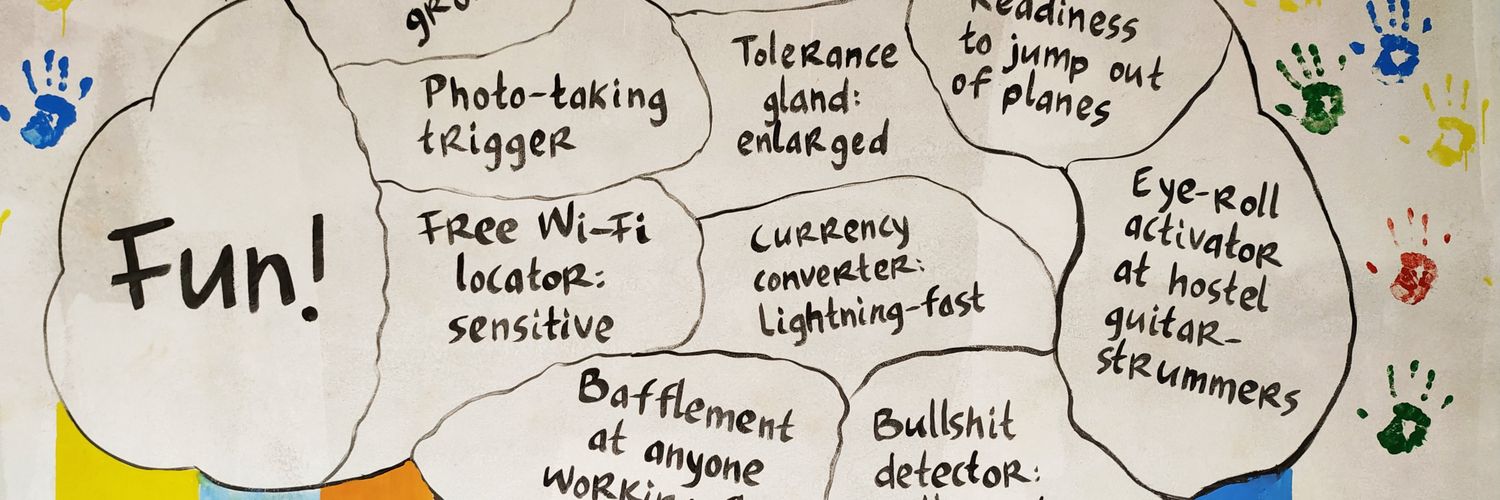 Fun!
Photo-taking
trigger
Tolerance
gland:
enlarged
Readiness
to jump out
of planes
Free Wi-Fi
locator:
sensitive
Currency
converter:
Lightning-fast
Eye-Roll
activator
at hostel
guitar-
strummers
Bafflement
at anyone
Bullshit
detector: